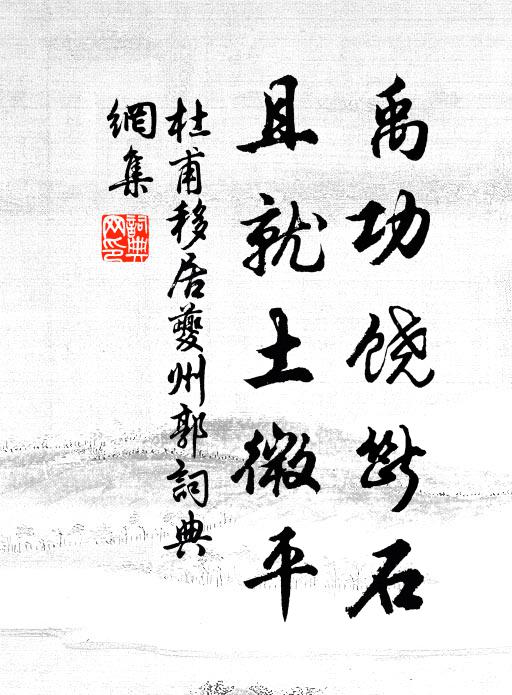 禹功饶断石
且就土微平
杜甫移居夔州郭詞典
網集
詞典
网印